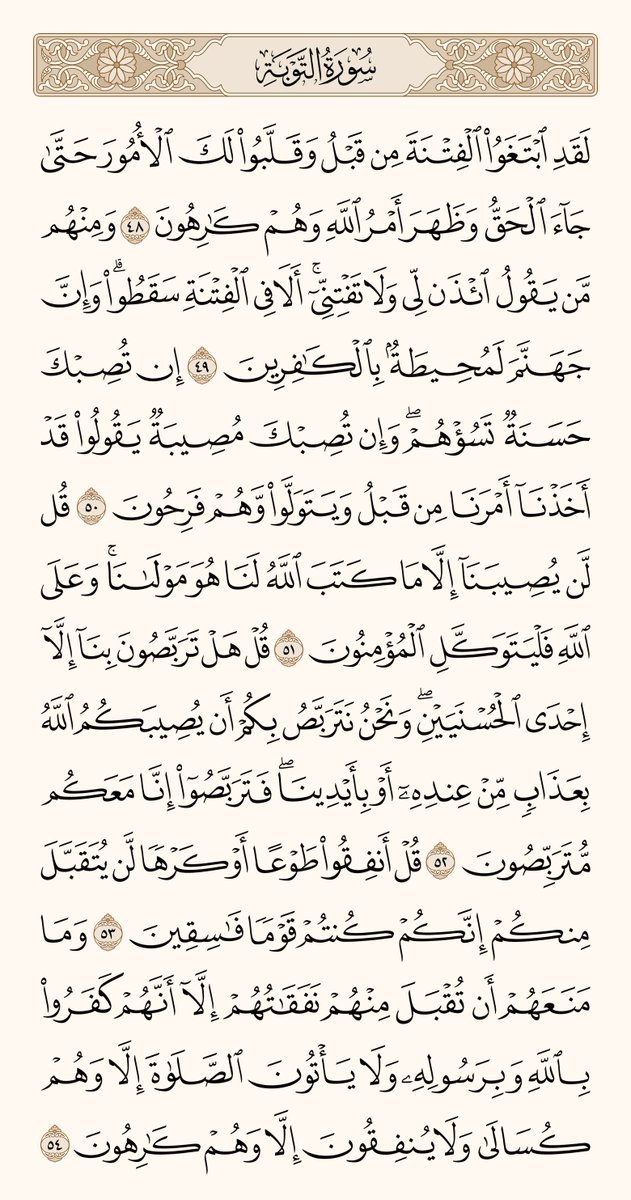 سُورَةُ التَّوۡبَةِ
لَقَدِ ٱبۡتَغَوُاْ ٱلۡفِتۡنَةَ مِن قَبۡلُ وَقَلَّبُواْ لَكَ ٱلۡأُمُورَ حَتَّىٰ
جَآءَ ٱلۡحَقُّ وَظَهَرَ أَمۡرُ ٱللَّهِ وَهُمۡ كَٰرِهُونَ ٤٨ وَمِنۡهُم
مَّن يَقُولُ ٱئۡذَن لِّي وَلَا تَفۡتِنِّيٓۚ أَلَا فِي ٱلۡفِتۡنَةِ سَقَطُواْۗ وَإِنَّ
جَهَنَّمَ لَمُحِيطَةُۢ بِٱلۡكَٰفِرِينَ ٤٩ إِن تُصِبۡكَ
حَسَنَةٞ تَسُؤۡهُمۡۖ وَإِن تُصِبۡكَ مُصِيبَةٞ يَقُولُواْ قَدۡ
أَخَذۡنَآ أَمۡرَنَا مِن قَبۡلُ وَيَتَوَلَّواْ وَّهُمۡ فَرِحُونَ ٥٠ قُل
لَّن يُصِيبَنَآ إِلَّا مَا كَتَبَ ٱللَّهُ لَنَا هُوَ مَوۡلَىٰنَاۚ وَعَلَى
ٱللَّهِ فَلۡيَتَوَكَّلِ ٱلۡمُؤۡمِنُونَ ٥١ قُلۡ هَلۡ تَرَبَّصُونَ بِنَآ إِلَّآ
إِحۡدَى ٱلۡحُسۡنَيَيۡنِۖ وَنَحۡنُ نَتَرَبَّصُ بِكُمۡ أَن يُصِيبَكُمُ ٱللَّهُ
بِعَذَابٖ مِّنۡ عِندِهِۦٓ أَوۡ بِأَيۡدِينَاۖ فَتَرَبَّصُوٓاْ إِنَّا مَعَكُم
مُّتَرَبِّصُونَ ٥٢ قُلۡ أَنفِقُواْ طَوۡعًا أَوۡ كَرۡهٗا لَّن يُتَقَبَّلَ
مِنكُمۡ إِنَّكُمۡ كُنتُمۡ قَوۡمٗا فَٰسِقِينَ ٥٣ وَمَا
مَنَعَهُمۡ أَن تُقۡبَلَ مِنۡهُمۡ نَفَقَٰتُهُمۡ إِلَّآ أَنَّهُمۡ كَفَرُواْ
بِٱللَّهِ وَبِرَسُولِهِۦ وَلَا يَأۡتُونَ ٱلصَّلَوٰةَ إِلَّا وَهُمۡ
كُسَالَىٰ وَلَا يُنفِقُونَ إِلَّا وَهُمۡ كَٰرِهُونَ ٥٤